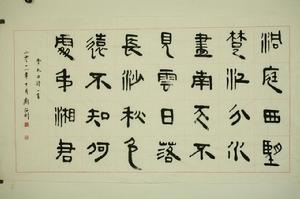 洞庭西望
楚江分水
盡南天不
見雲日落
長沙秋色
遠不知何
處弔湘君